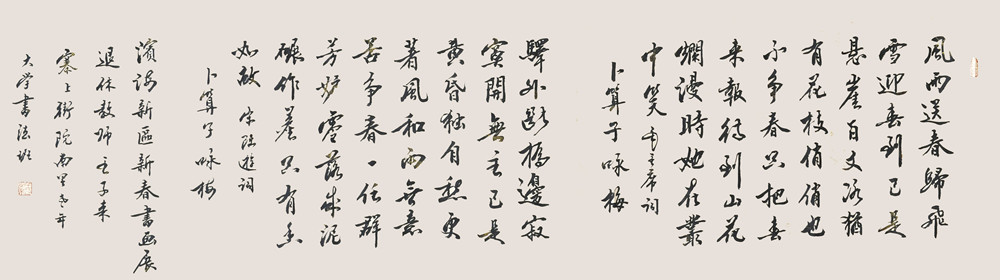 風雨送春歸飛
雪迎春到已是
懸崖百丈冰猶
有花枝俏俏也
不争春只把春
来報待到山花
爛漫時她在叢
中笑 毛主席詞
卜算子咏梅
驛外斷橋邊寂
寞開無主已是
黄昏独自愁更
著風和雨無意
苦争春一任群
芳妒零落成泥
碾作塵只有香
如故 宋陸遊詞
卜算子咏梅
濱海新區新春書画展
退休教師王子来
塞上街院南里老年
大学書法班